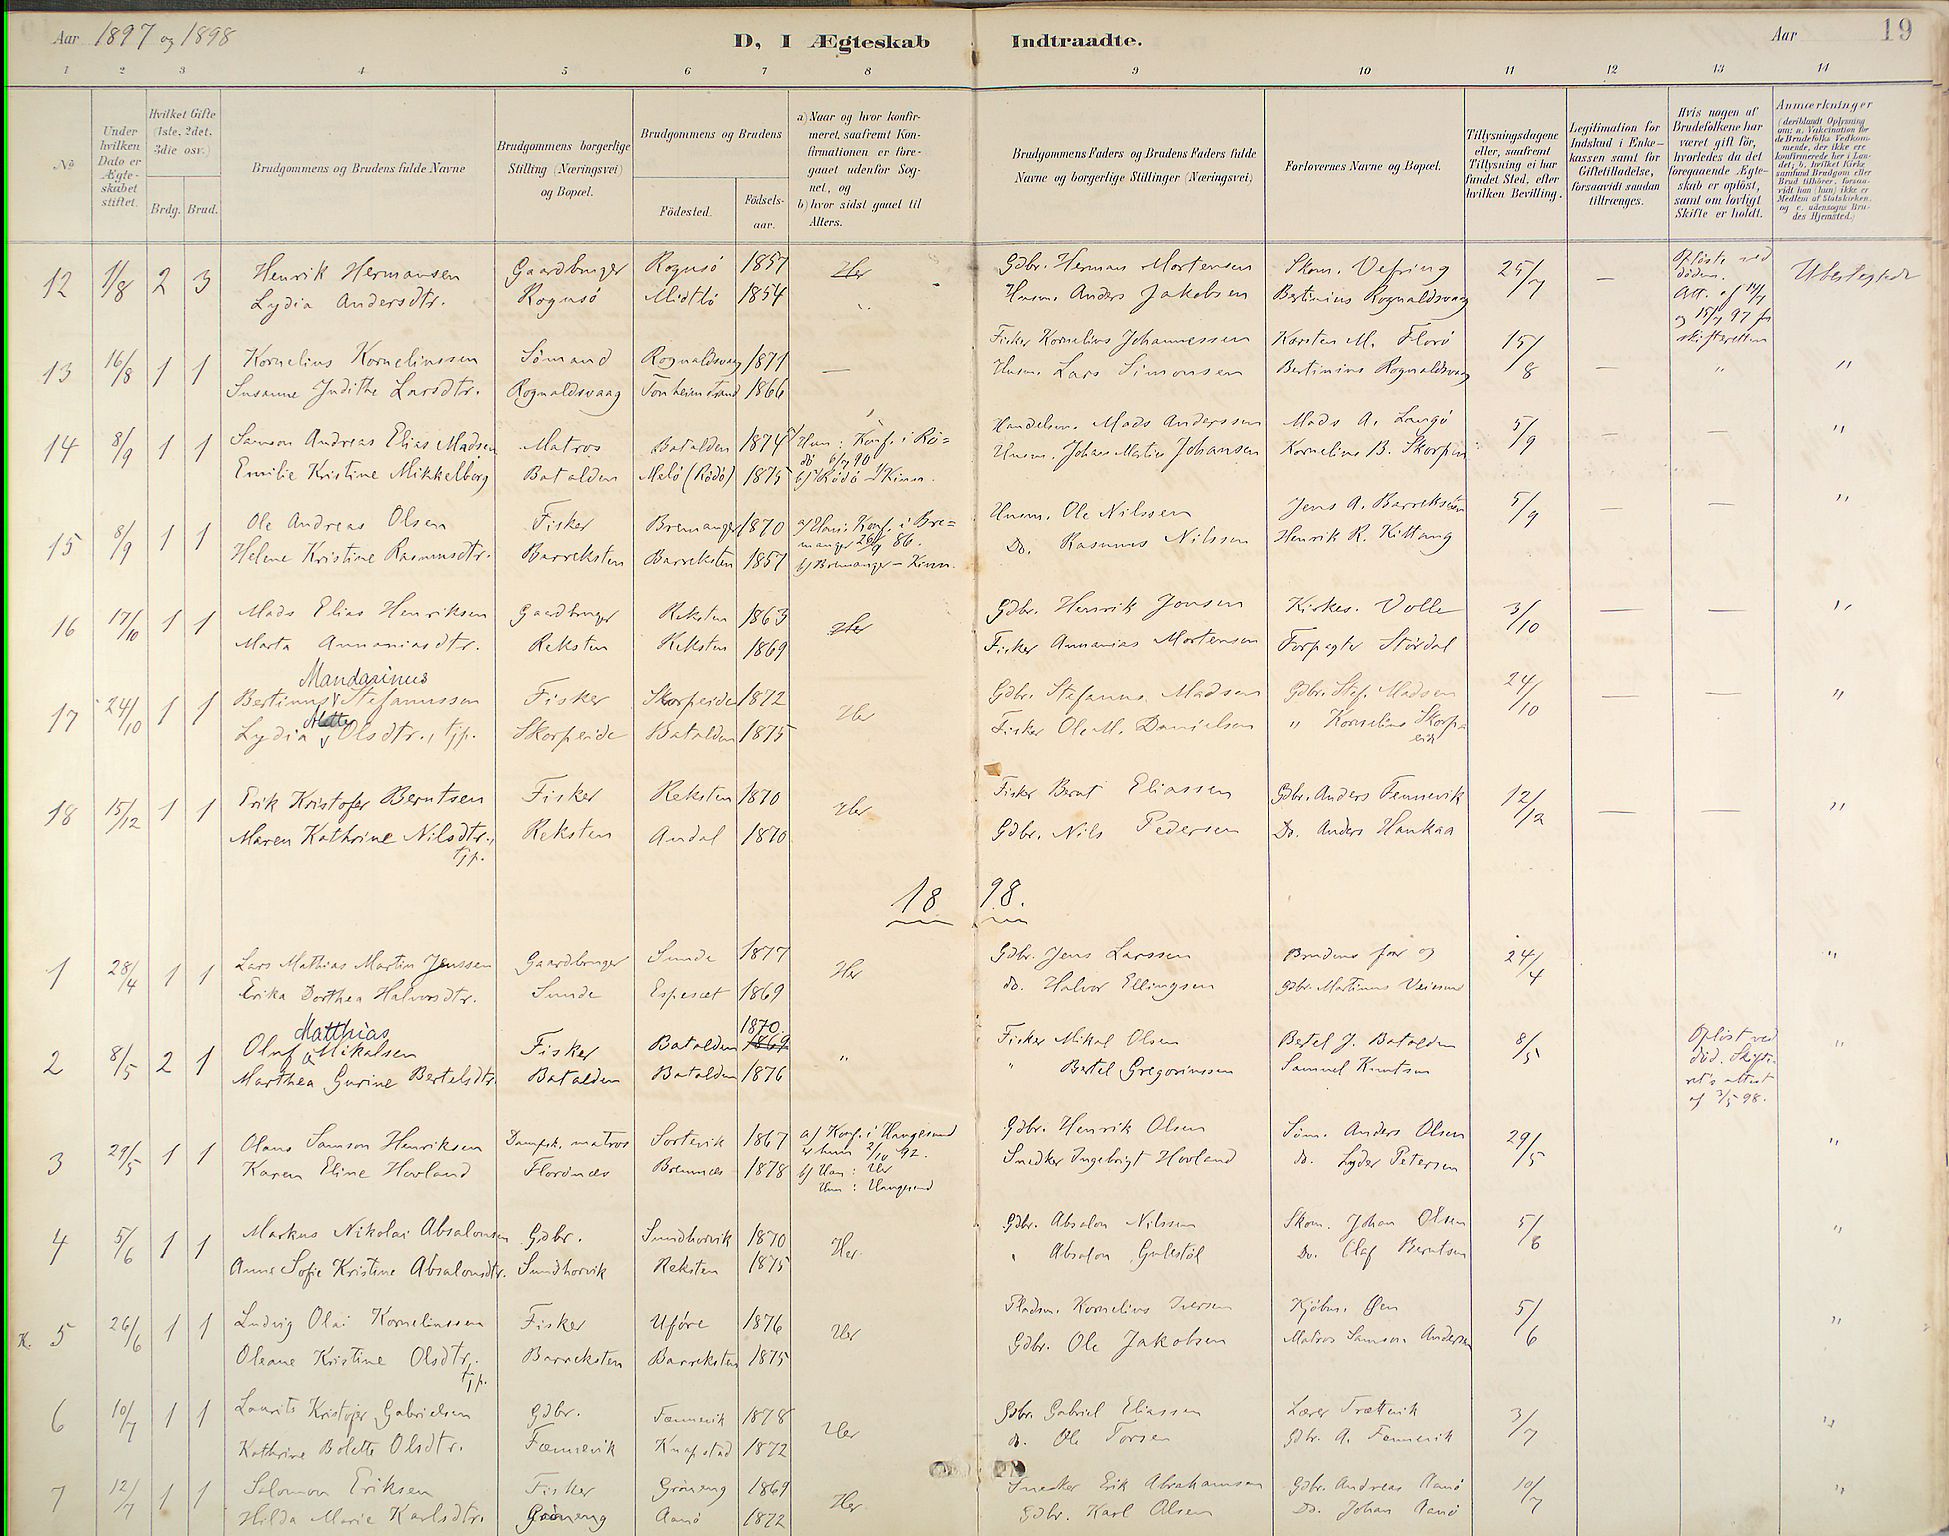 Aar 1897 og 1898
D, I Ægteskab Indtraadte.
Aar
19
1 2 3 4 5 6 7 8 9 10 11 12 13 14
No
Under hvilken Dato er Ægte-skabet stiftet.
Hvilket Gifte (1ste, 2det, 3die osv.)
Brdg. Brud.
Brudgommens og Brudens fulde Navne
Brudgommens borgerlige Stilling (Næringsvei) og Bopæl.
Brudgommens og Brudens
Födested.
Födsels-aar.
a) Naar og hvor konfir-meret, saafremt Kon-firmationen er fore-gaaet udenfor Sog-net, og
b) hvor sidst gaaet til Alters.
Brudgommens Faders og Brudens Faders fulde Navne og borgerlige Stillinger (Næringsvei)
Forlovernes Navne og Bopæl.
Tillysningsdagene eller, saafremt Tillysning ei har fundet Sted, efter hvilken Bevilling.
Legitimation for Indskud i Enke-kassen samt for Giftetilladelse, forsaavidt saadan tiltrænges.
Hvis nogen af Brudefolkene har været gift för, hvorledes da det foregaaende Ægte-skab er oplöst, samt om lovligt Skifte er holdt.
Anmærkninger
(deriblandt Oplysning om: a. Vakcination for de Brudefolks Vedkom-mende, der ikke ere konfirmerede her i Lan-det; b. hvilket Kirke-samfund Brudgom eller Brud tilhörer, forsaa-vidt han (hun) ikke er Medlem af Statskirken, og c. udensogns Bru-des Hjemsted.)
12 1/8 2 3 Henrik Hermansen Gaardbruger Rognsö 1857 Her Gdbr. Herman Mortensen Skom. Vefring 25/7 — Oplöste ved döden. Att. af 14/7 og 15/7 97 fr skifteretten Ubeslegtede
Lydia Andersdtr. Rognsö Midtlö 1854 " Husm. Anders Jakobsen Bertinius Rognaldsvaag
13 16/8 1 1 Kornelius Korneliussen Sömand Rognaldsvaag 1871 — Fisker Kornelius Johannessen Karsten M. Florö 15/8 — " "
Susanne Judithe Larsdtr. Rognaldsvaag Tonheimstrand 1866 Husm. Lars Simonsen Bertinius Rognaldsvaag
14 8/9 1 1 Samson Andreas Elias Madsen Matros Batalden 1874 Hun: Konf. i Rö=dö 6/7 90 Handelsm. Mads Anderssen Mads A. Langö 5/9 — — "
Emilie Kristine Mikkelborg Batalden Melö (Rödö) 1875 b/ Rödö – Kinn. Husm. Johans Martin Johansen Kornelius B. Skorpen
15 8/9 1 1 Ole Andreas Olsen Fisker Bremanger 1870 a/ Han: Konf. i Bre=manger 26/9 86. Husm. Ole Nilssen Jens A. Barreksten 5/9 — — "
Helene Kristine Rasmusdtr. Barreksten Barreksten 1857 b/ Bremanger – Kinn. Do. Rasmus Nilssen Henrik R. Kittang
16 17/10 1 1 Mads Elias Henriksen Gaardbruger Reksten 1863 Her Gdbr. Henrik Jonsen Kirkes. Volle 3/10 — — "
Marta Annaniasdtr. Reksten Reksten 1869 Fisker Annanias Mortensen Forpagter Stördal
Mandarinus
17 24/10 1 1 Bertinus Stefanussen Fisker Skorpeide 1872 Her Gdbr. Stefanus Madsen Gdbr. Stef. Madsen 24/10 — — "
Lydia Olsdtr., tjp. Skorpeide Batalden 1875 Fisker Ole M. Danielsen " Kornelius Skorpeid
18 15/12 1 1 Erik Kristofer Berntsen Fisker Reksten 1870 Her Fisker Bernt Eliassen Gdbr. Anders Fennevik 12/12 — — "
Maren Kathrine Nilsdtr., tjp. Reksten Andal 1870 Gdbr. Nils Pedersen Do. Anders Haukaa
1898.
1 28/4 1 1 Lars Mathias Martin Jenssen Gaardbruger Sunde 1877 Her Gdbr. Jens Larssen Brudens far og 24/4 "
Erika Dorthea Halvorsdtr. Sunde Espeset 1869 do. Halvor Ellingsen Gdbr. Martinus
Matthias 1870.
2 8/5 2 1 Oluf Mikalsen Fisker Batalden 1869 " Fisker Mikal Olsen Bertel J. Batalden 8/5 Oplöst ved död. Skifte-ret's attest af 3/5 98. "
Marthea Gurine Bertelsdtr. Batalden Batalden 1876 " Bertel Gregoriussen Samuel Knutsen
3 29/5 1 1 Olaus Samson Henriksen Dampsk. matros Sortevik 1867 a/ Konf. i Haugesund er hun 2/10 92. Gdbr. Henrik Olsen Söm. Anders Olsen 29/5 "
Karen Eline Hovland Florönæs Brennæs 1878 b/ Han: Her Hun: Haugesund Snedker Ingebrigt Hovland do. Lyder Petersen
4 5/6 1 1 Markus Nikolai Absalonsen Gdbr. Sundhovik 1870 Her. Gdbr. Absalon Nilssen Skom. Johan Olsen 5/6 "
Anne Sofie Kristine Absalonsdtr. Sundhovik Reksten 1875 " Absalon Gulestöl Do. Olaf Berntsen
K. 5 26/6 1 1 Ludvig Olai Korneliussen Fisker Uföre 1876 Her Pladsm. Kornelius Iversen Kjöbm. Øen 5/6 "
Oleane Kristine Olsdtr. tjp. Barreksten Barreksten 1875 Gdbr. Ole Jakobsen Matros Samson Andersen
6 10/7 1 1 Laurits Kristofer Gabrielsen Gdbr. Fænnevik 1878 Her Gdbr. Gabriel Eliassen Lærer Trættevik 3/7 "
Kathrine Bolette Olsdtr. Fænnevik Knapstad 1872 do. Ole Torsen Gdbr. A. Fennevik
7 12/7 1 1 Salomon Eriksen Fisker Gröneng 1869 Her Snedker Erik Abrahamsen Gdbr. Andreas Aanö 10/7 "
Hilda Marie Karlsdtr. Gröneng Aanö 1872 Gdbr. Karl Olsen Do. Johan Aanö